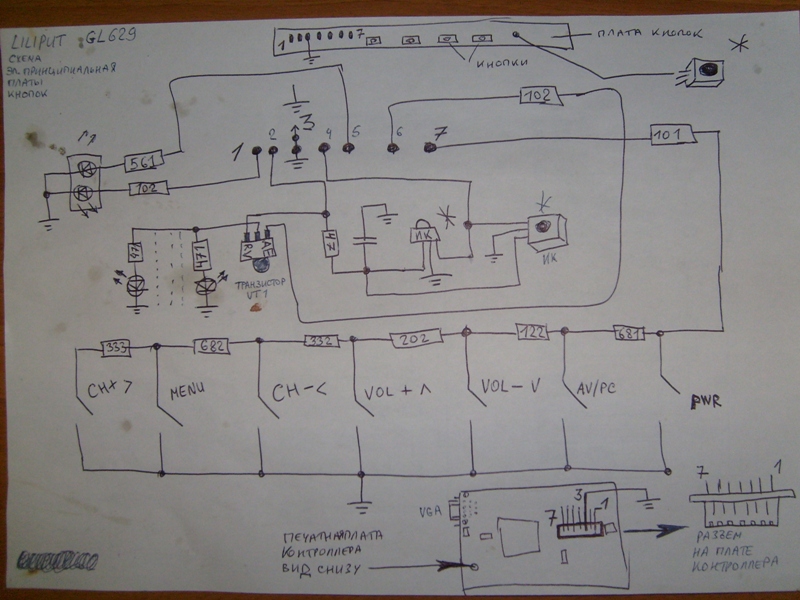 LILIPUT GL629
СХЕМА
ЭЛ ПРИНЦИПИАЛЬНАЯ
ПЛАТЫ
КНОПОК
1
7
ПЛАТА КНОПОК
КНОПКИ
*
102
3
1
2
4
5
6
7
101
561
102
471
471
47
ИК
*
*
ИК
ТРАНЗИСТОР
VT1
333
682
332
202
122
681
CH+ >
MENU
CH-<
VOL + Λ
VOL - V
AV/PC
PWR
VGA
3
7
1
7
1
ПЕЧАТНАЯ ПЛАТА
КОНТРОЛЛЕРА
ВИД СНИЗУ
РАЗЪЕМ
НА ПЛАТЕ
КОНТРОЛЛЕРА